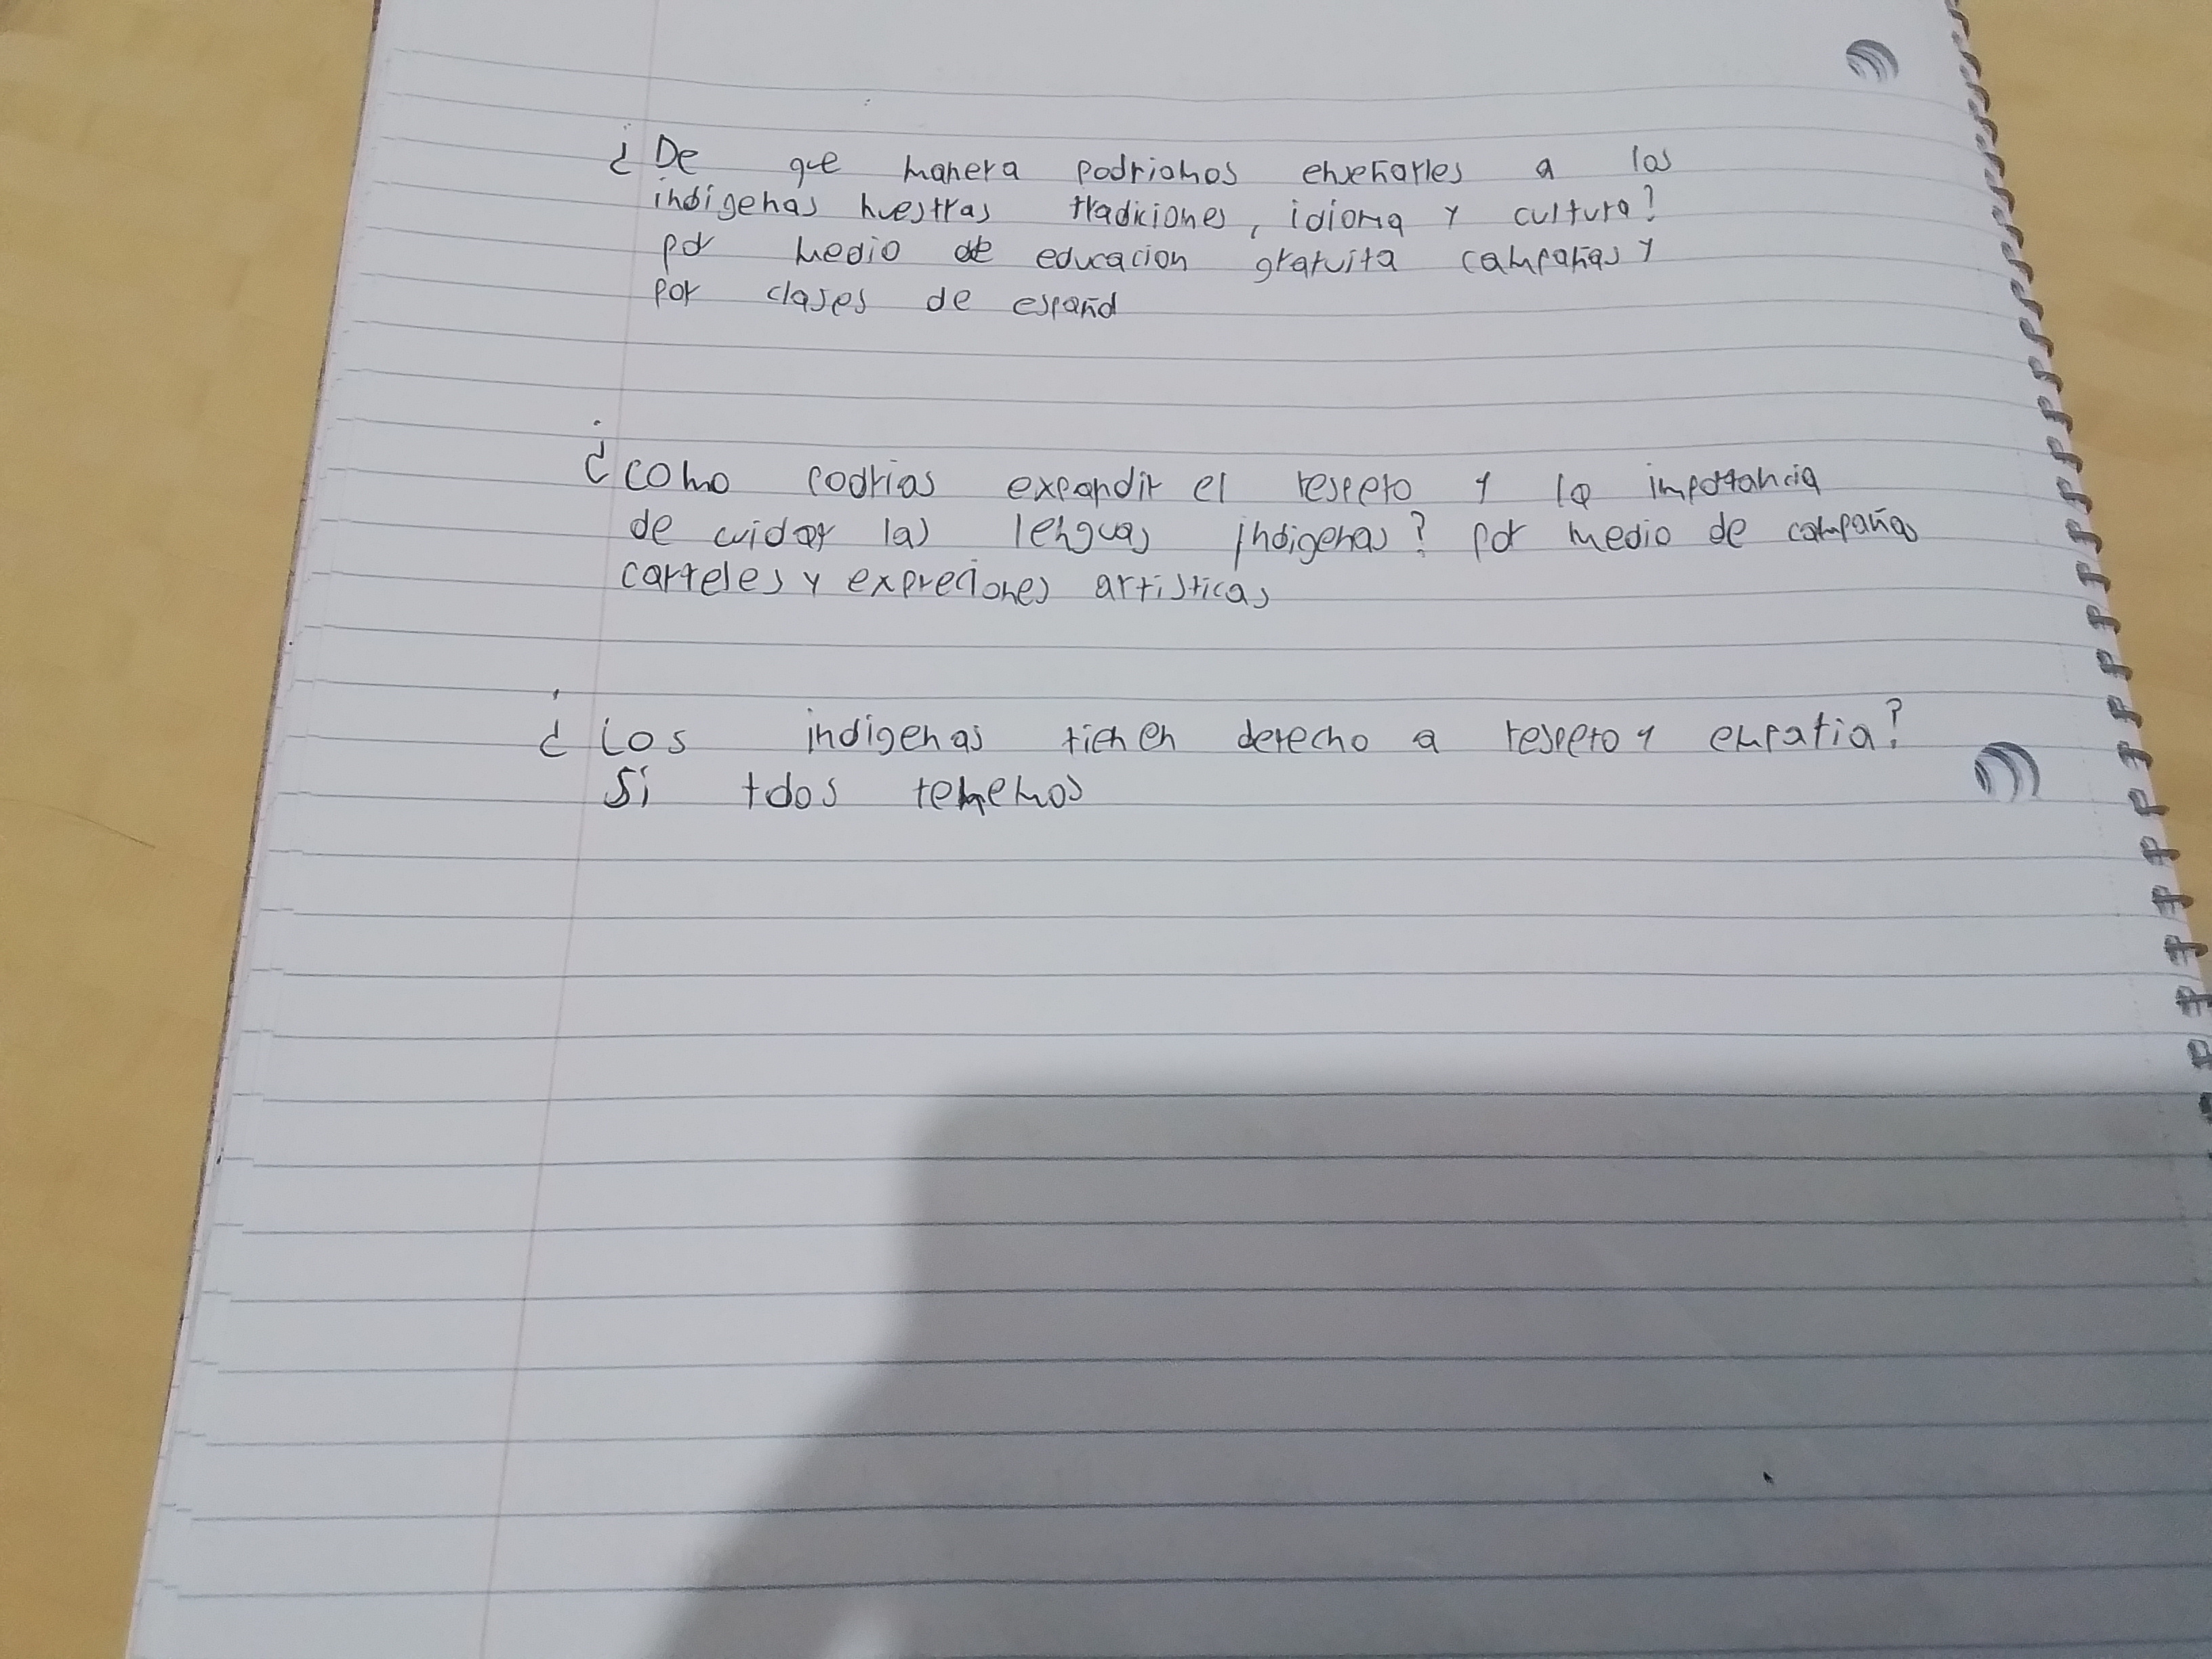 ¿De que manera podriamos enseñarles a los
indígenas nuestras tradiciones, idioma y cultura?
por medio de educacion gratuita campañas y
por clases de español
¿como podrias expandir el respeto y la importancia
de cuidar las lenguas indigenas? por medio de campañas
carteles y expreciones artisticas
¿Los indigenas tienen derecho a respeto y empatia?
Si tdos tenemos